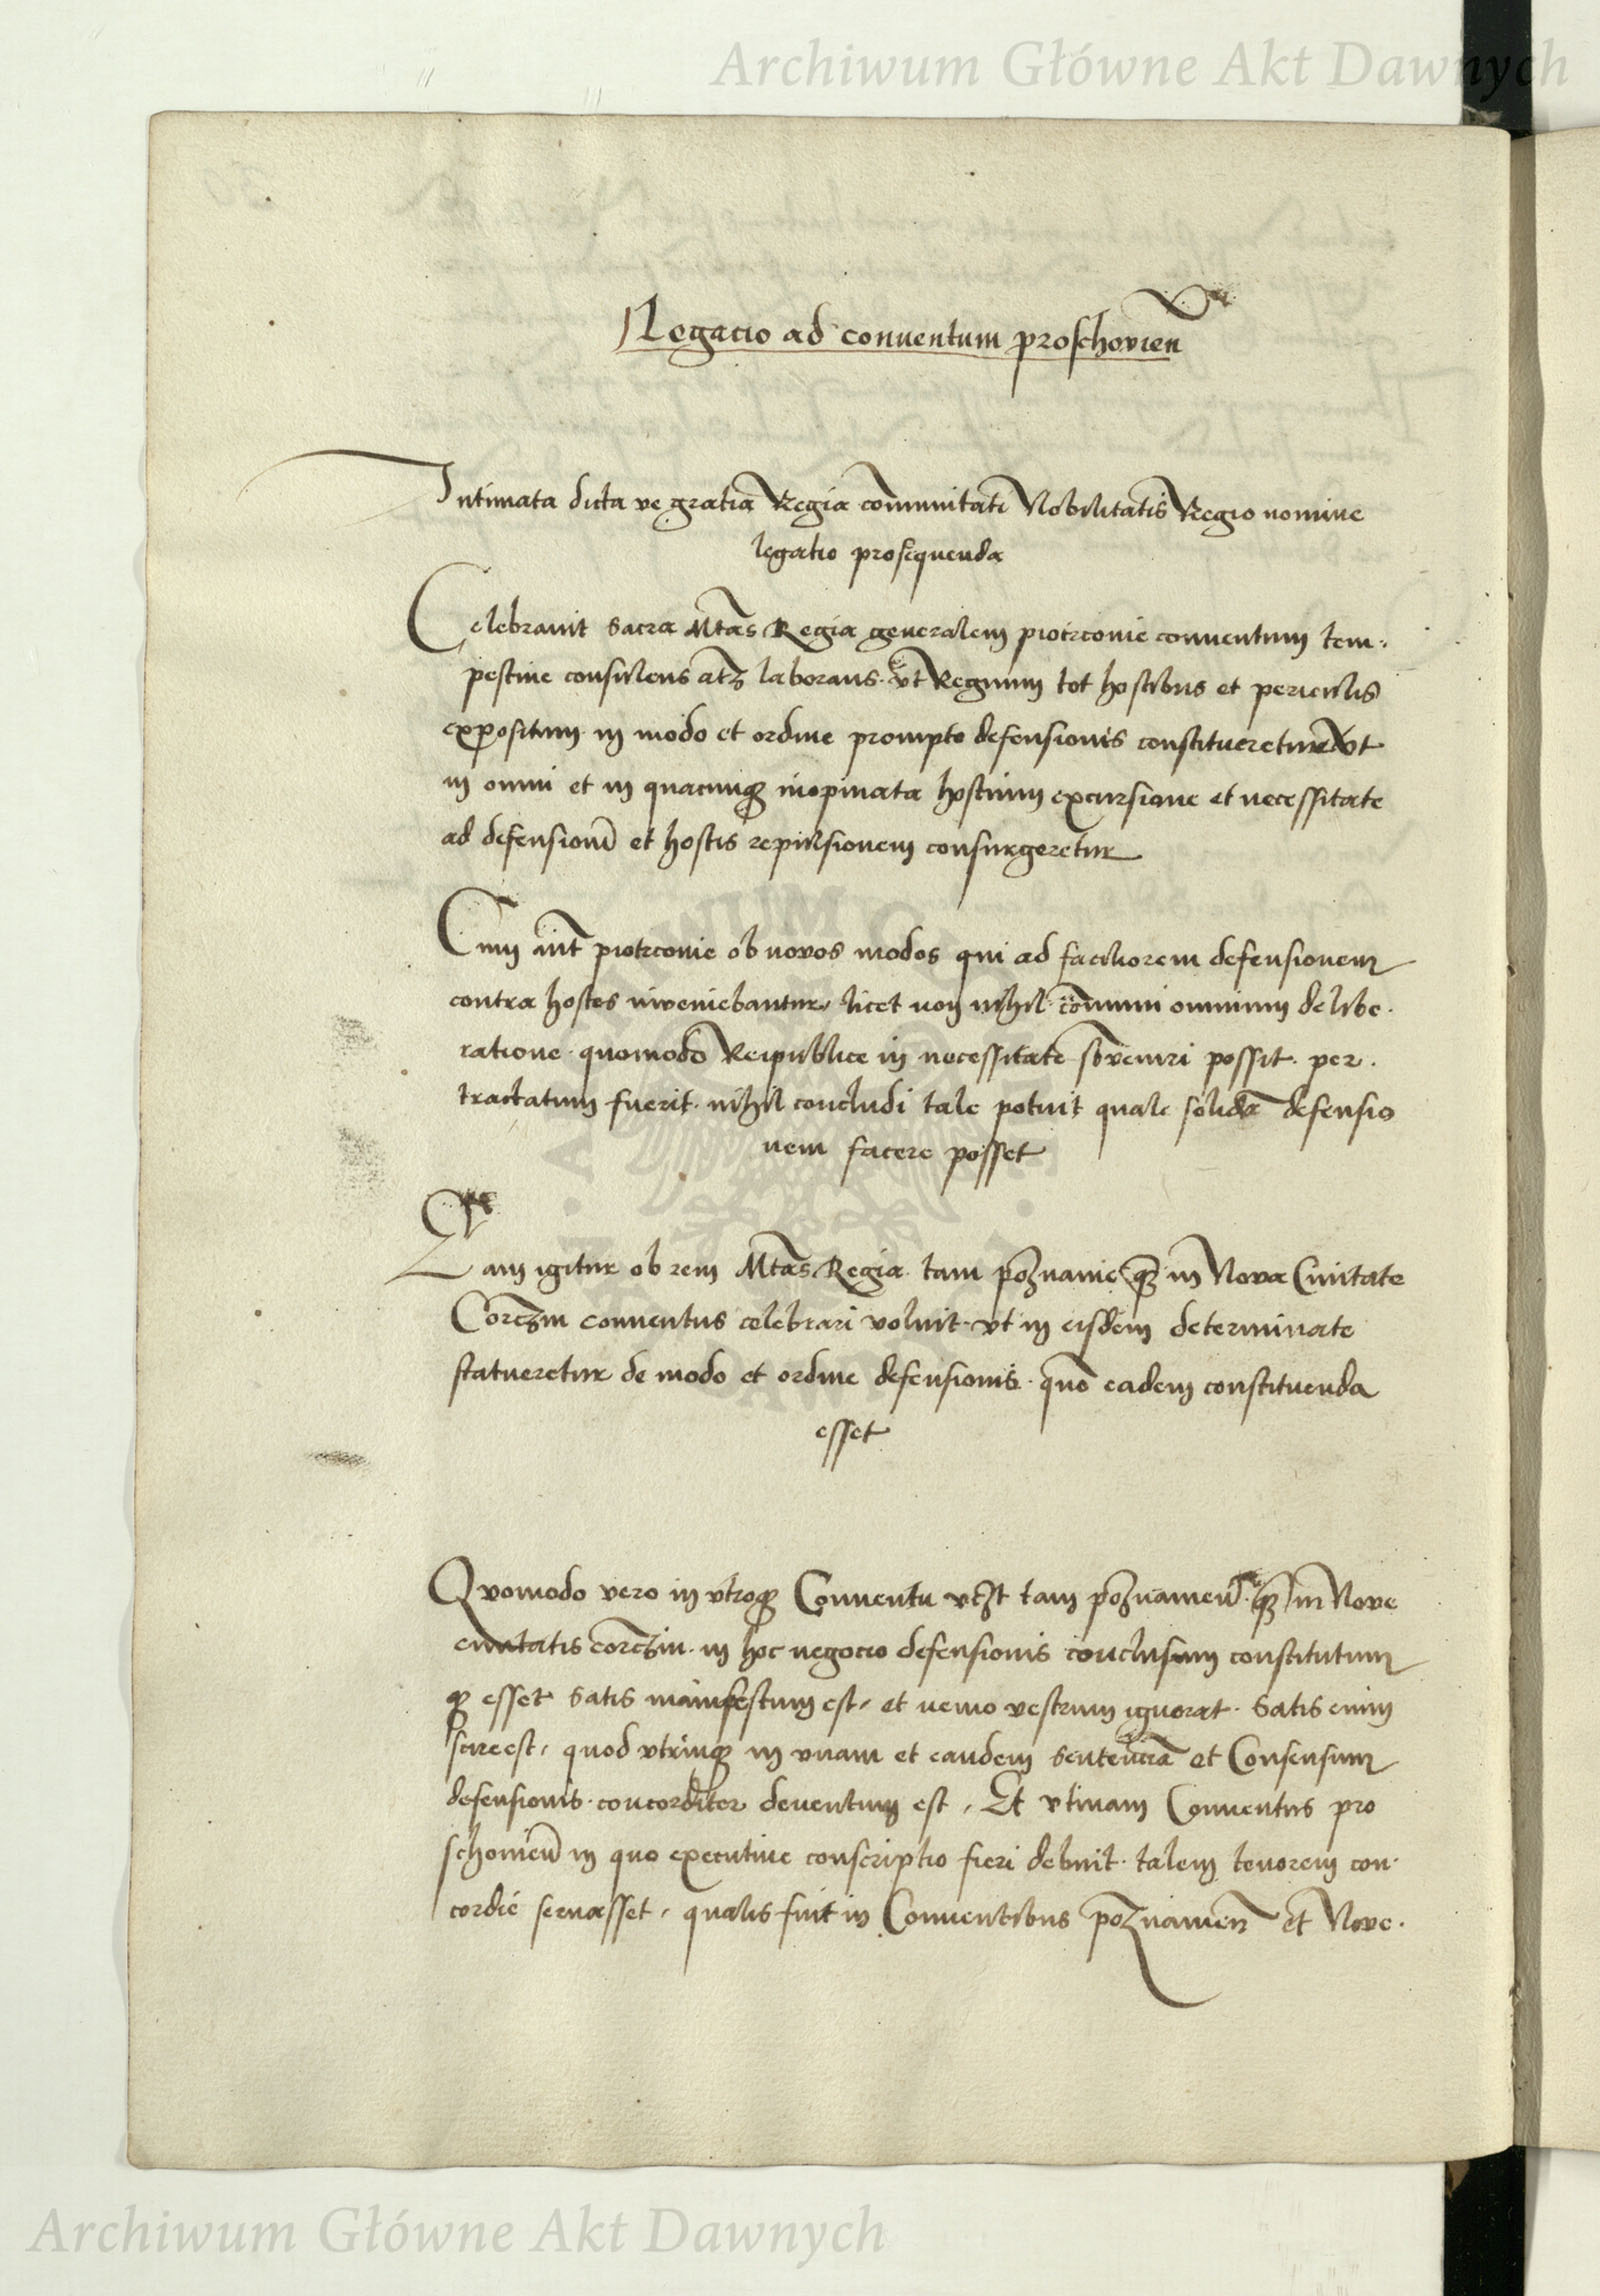 Archiwum Główne Akt Dawnych
Legacio ad conuentum proschouien
Intimata dicta ve gratia Regia communitati Nobilitatis Regio nomine
legatio prosequenda
Celebrauit Sacra Mtas Regia generalem piotrconie conuentum tem:
pestiue consulens atqz laborans. vt Regnum tot hostibus et periculis
expositum in modo et ordine prompte defensionis constitueretur vt
in omni et in quacunqz inopinata hostium excursione et necessitate
ad defensionē et hostis repulsionem consurgeretur
Cum aūt piotrconie ob novos modos qui ad faciliorem defensionem
contra hostes inveniebantur, licet non nihil cōmuni omnium delibe.
ratione quomodo Reipublice in necessitate sbveniri possit. per.
tractatum fuerit. nihil concludi tale potuit quale solidā defensio
nem facere posset
Eam igitur ob rem Mtas Regia tam poznanie qz in Nova Ciuitate
Corczin conuentus celebrari voluit. vt in eisdem determinate
statueretur de modo et ordine defensionis. quo eadem constituenda
esset
Quomodo vero in vtroqz Conuentu vtzt tam poznamen qz in Nove
ciuitatis corczin. in hoc negocio defensionis conclusum constitutum
qz esset satis manifestum est, et nemo vestrum ignorat. Satis enim
scire est, quod vtrinqz in vnam et eandem sentenciā et Consensum
defensionis concorditer deuentum est, Et vtinam Conuentus pro
schouieñ in quo executiue conscriptio fieri debuit. talem tenorem con.
cordie seruasset, qualis fuit in Conuentibus poznamen et Nove.
Archiwum Główne Akt Dawnych